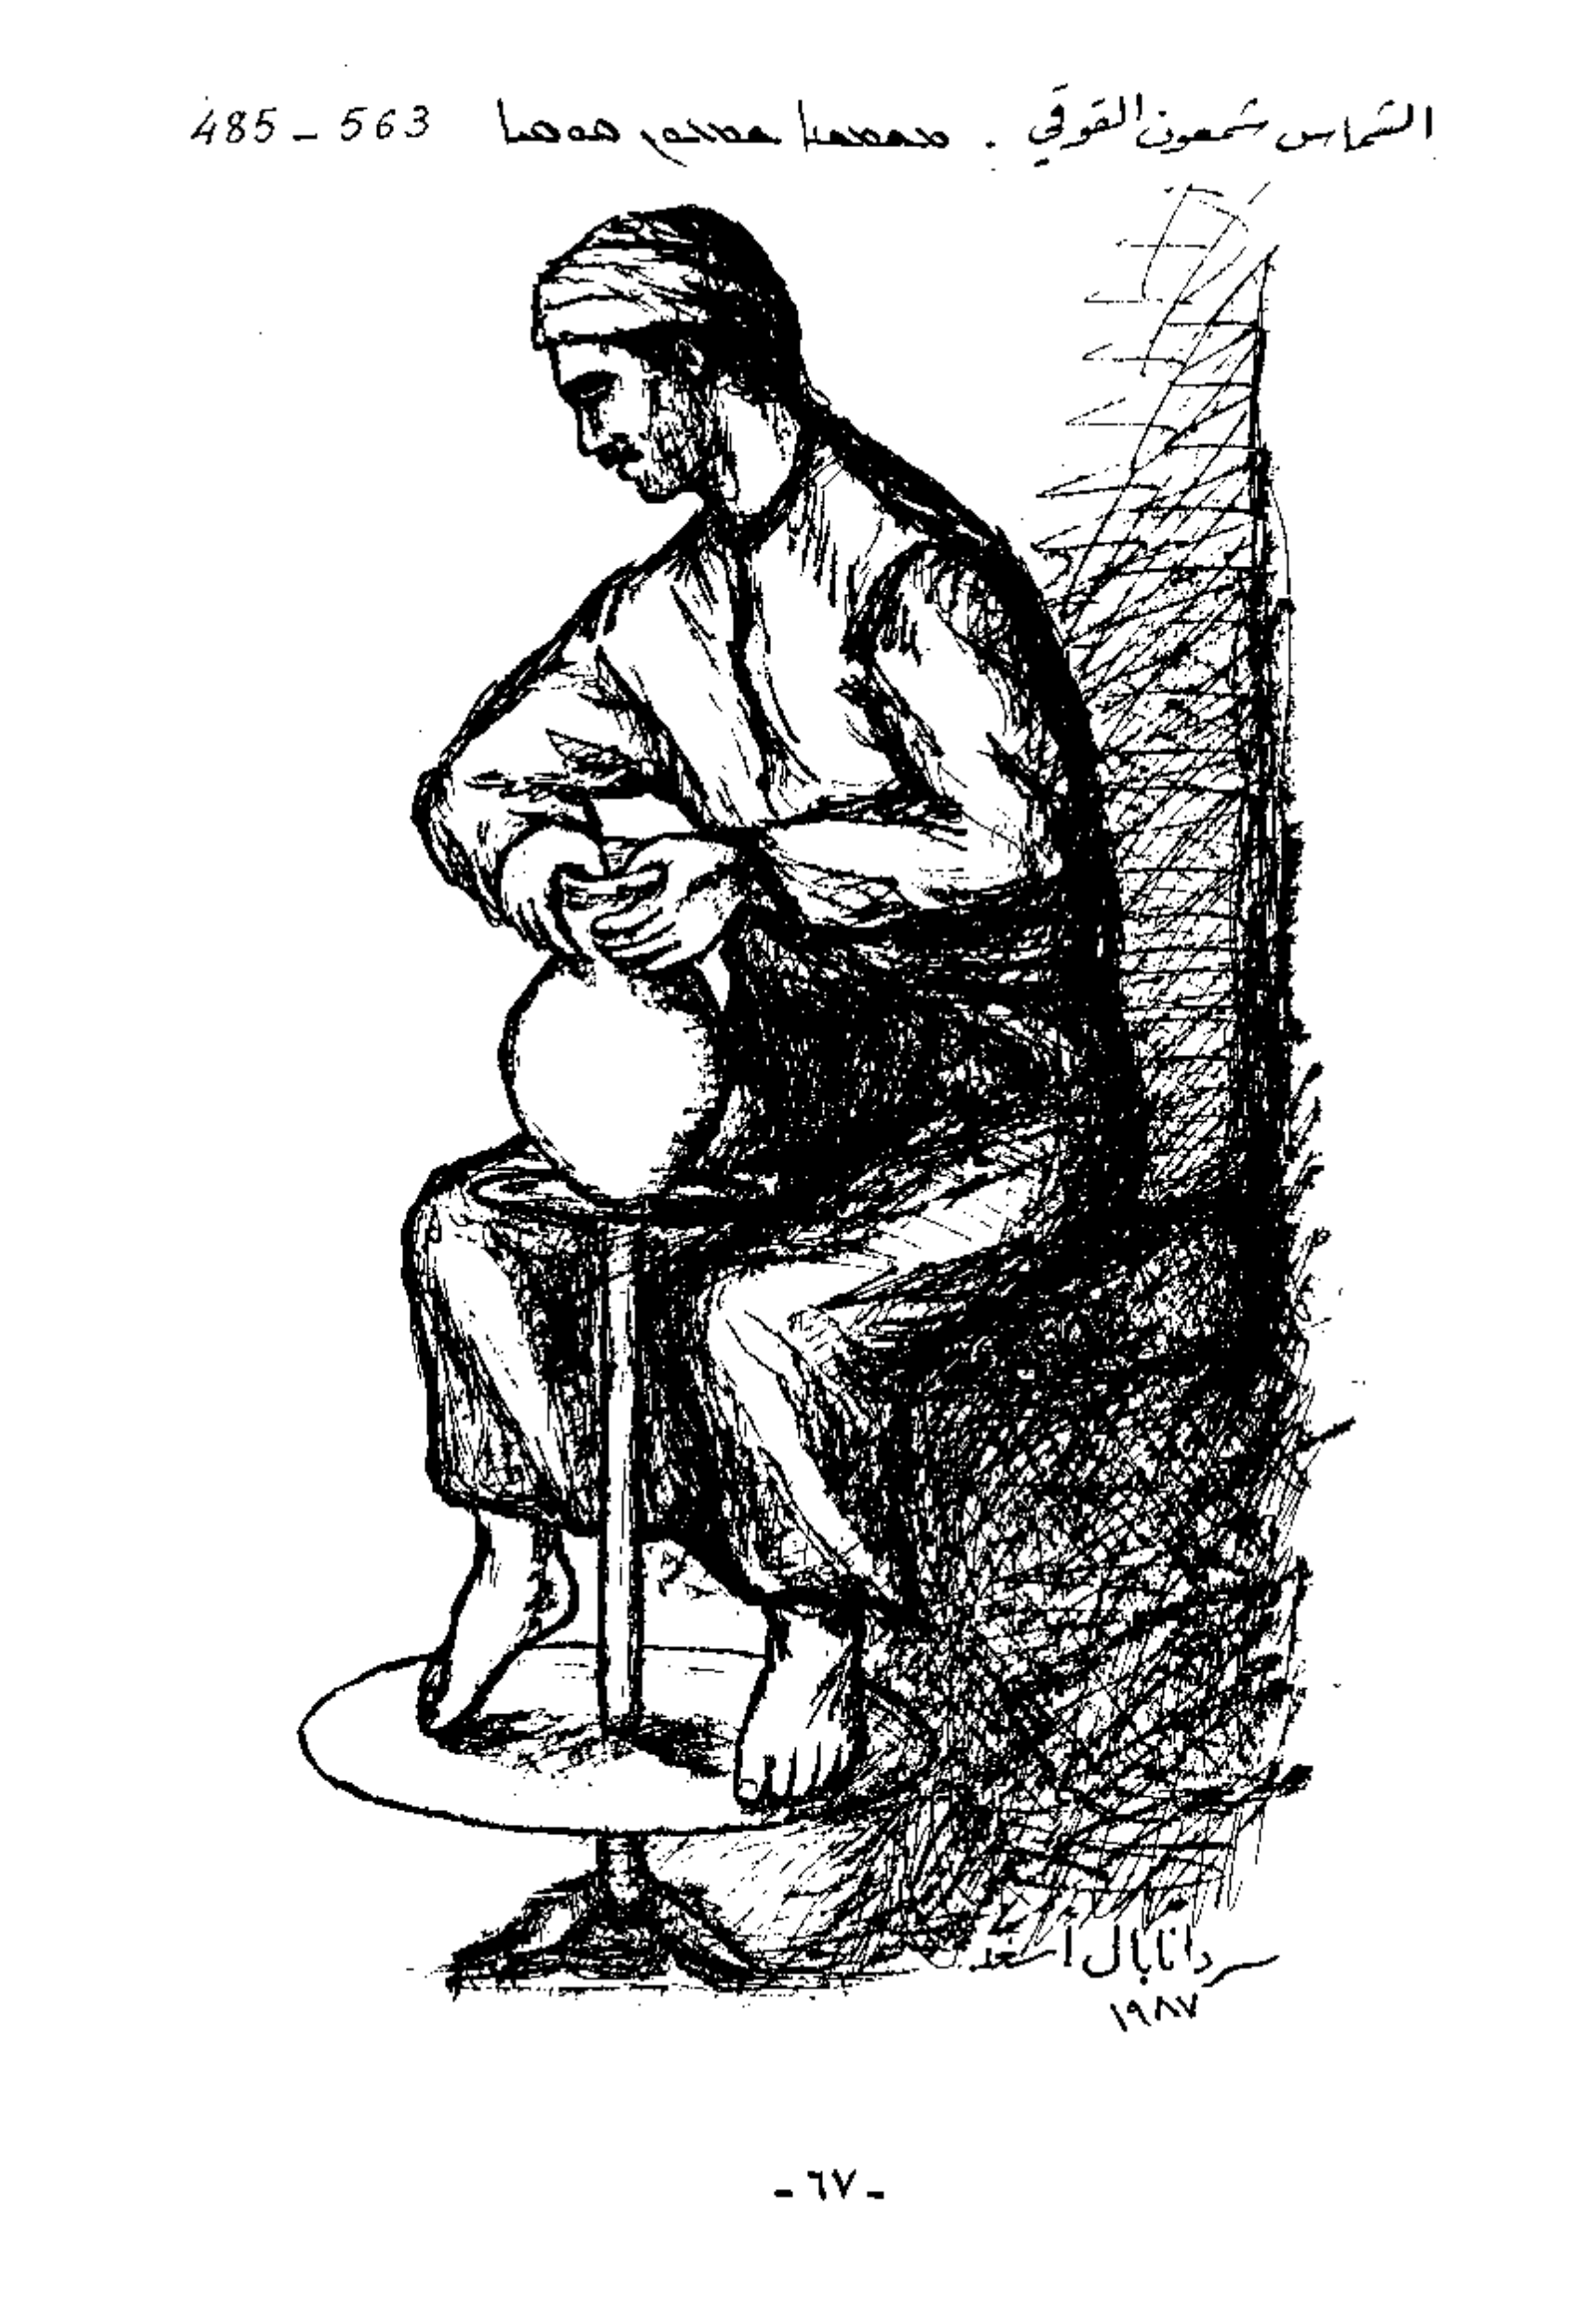 الشماس شمعون القوقي . ܡܫܡܫܢܐ ܫܡܥܘܢ ܩܘܩܝܐ 485 - 563
سردانابال أسعد
١٩٨٧
- ٦٧ -